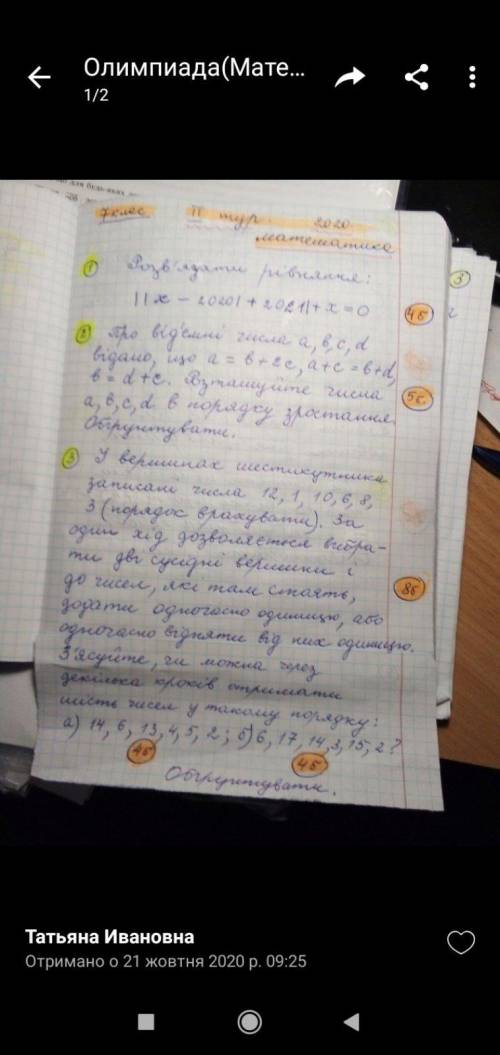 Олимпиада(Мате...
1/2
7 клас II тур 2020
математика
① Розв'язати рівняння:
||x - 2020| + 2021| + x = 0
4б
② Про від'ємні числа a, b, c, d
відомо, що a = b + 2c, a + c = b + d,
b = d + c. Розташуйте числа
a, b, c, d в порядку зростання.
5б
Обґрунтувати.
③ У вершинах шестикутника
записані числа 12, 1, 10, 6, 8,
3 (порядок врахувати). За
один хід дозволяється вибра-
ти дві сусідні вершини і
до чисел, які там стоять,
8б
додати одночасно одиницю, або
одночасно відняти від них одиницю.
З'ясуйте, чи можна через
декілька кроків отримати
шість чисел у такому порядку:
а) 14, 6, 13, 4, 5, 2; б) 6, 17, 14, 3, 15, 2?
4б 4б
Обґрунтувати.
Татьяна Ивановна
Отримано о 21 жовтня 2020 р. 09:25